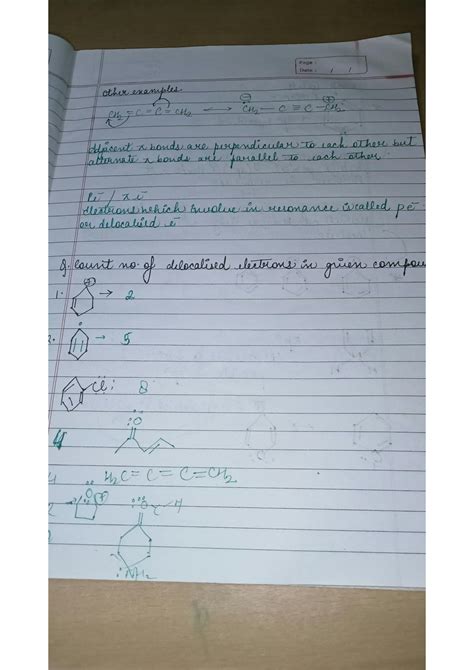 Page :
Date : / /
Other examples.
CH₂ = C = C = CH₂ → CH₂ — C ≡ C — CH₂
⊖ ⊕
Adjacent π bonds are perpendicular to each other but
alternate π bonds are parallel to each other
Pe⁻ / πe⁻
Electrons which involve in resonance is called pe⁻
or delocalised e⁻
Q. Count no. of delocalised electrons in given compou
1. ⊕ → 2
2. → 5
Cl: 8
4 :O
H₂C = C = C = CH₂
2 O ⊕ :O C - H
:NH₂